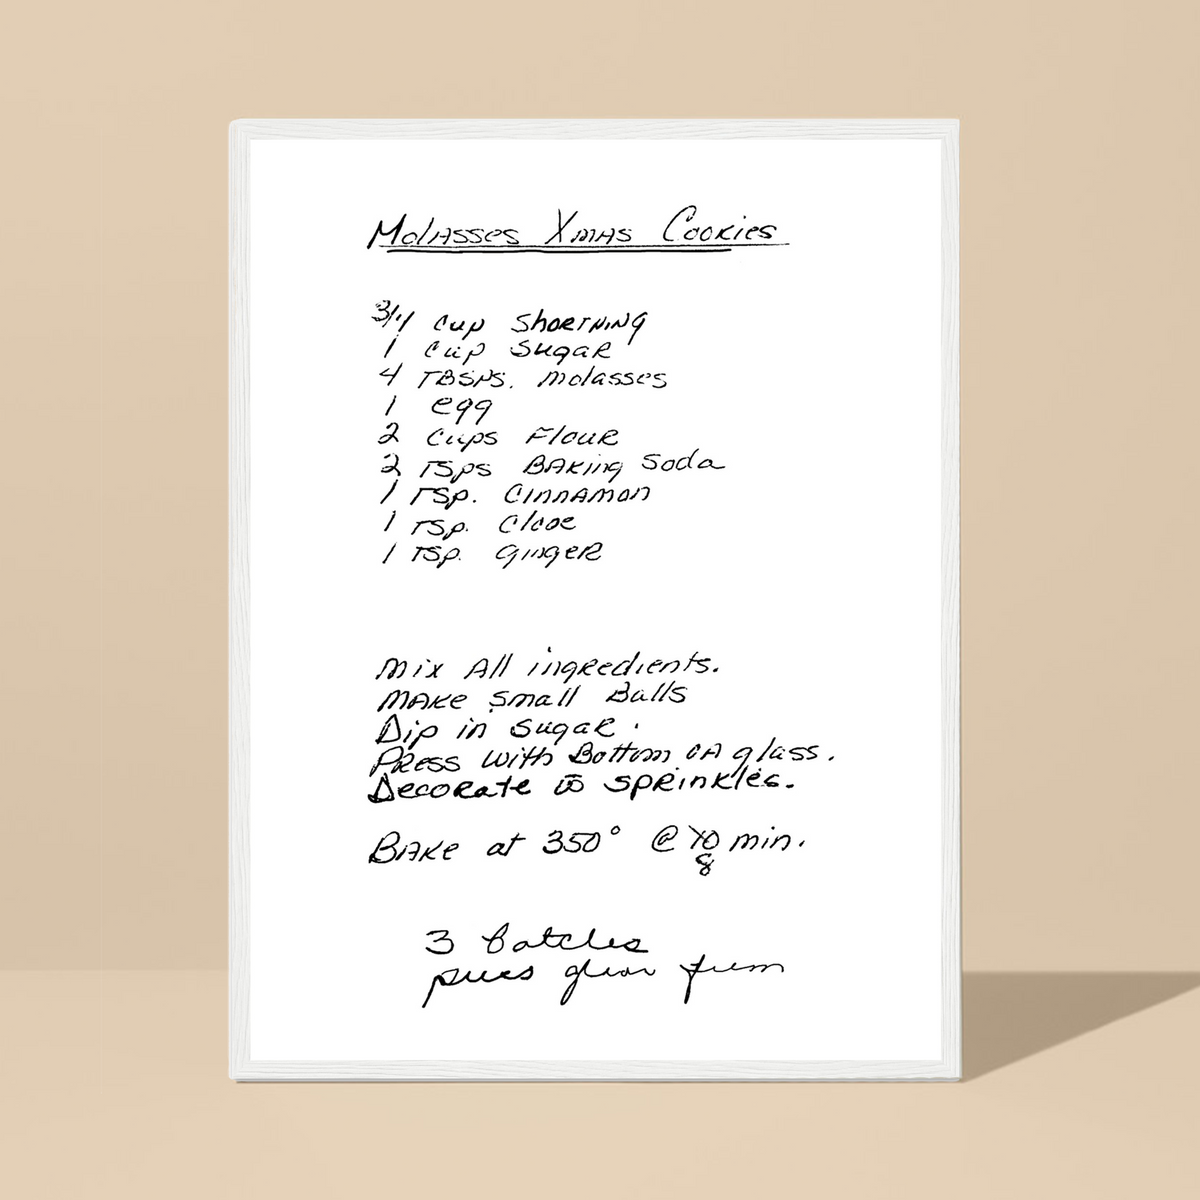 Molasses Xmas Cookies
3/4 cup Shortning
1 cup sugar
4 TBSPS. molasses
1 egg
2 cups Flour
2 Tsps Baking Soda
1 Tsp. Cinnamon
1 Tsp. Clove
1 Tsp. Ginger
Mix All ingredients.
Make small Balls
Dip in sugar.
Press with Bottom of A glass.
Decorate w̄ sprinkles.
Bake at 350° @ 10 min.
8
3 batches